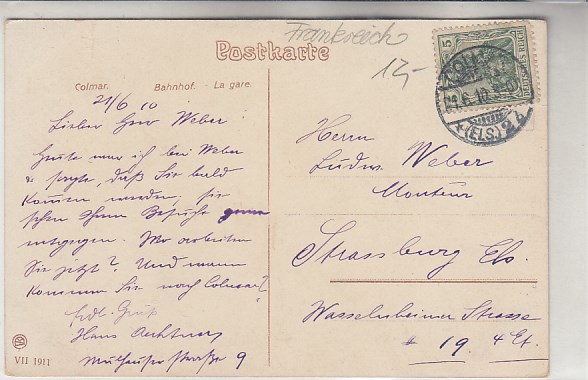 Frankreich
Postkarte
12,-
Colmar. Bahnhof. - La gare.
5
21/6 10
Lieber Herr Weber!
Heute war ich bei Weber
& sagte, daß Sie bald
kommen werden, sie
sehen Ihrem Besuche gerne
entgegen. Wo arbeiten
Sie jetzt? Und wann
kommen Sie nach Colmar?
frdl. Gruß
Hans
Mülhauser Strasse 9
Herrn
Ludw. Weber
Monteur
Strassburg Els.
Wasselnheimer Strasse
# 19 4 Et.
(ELS)
VII 1911